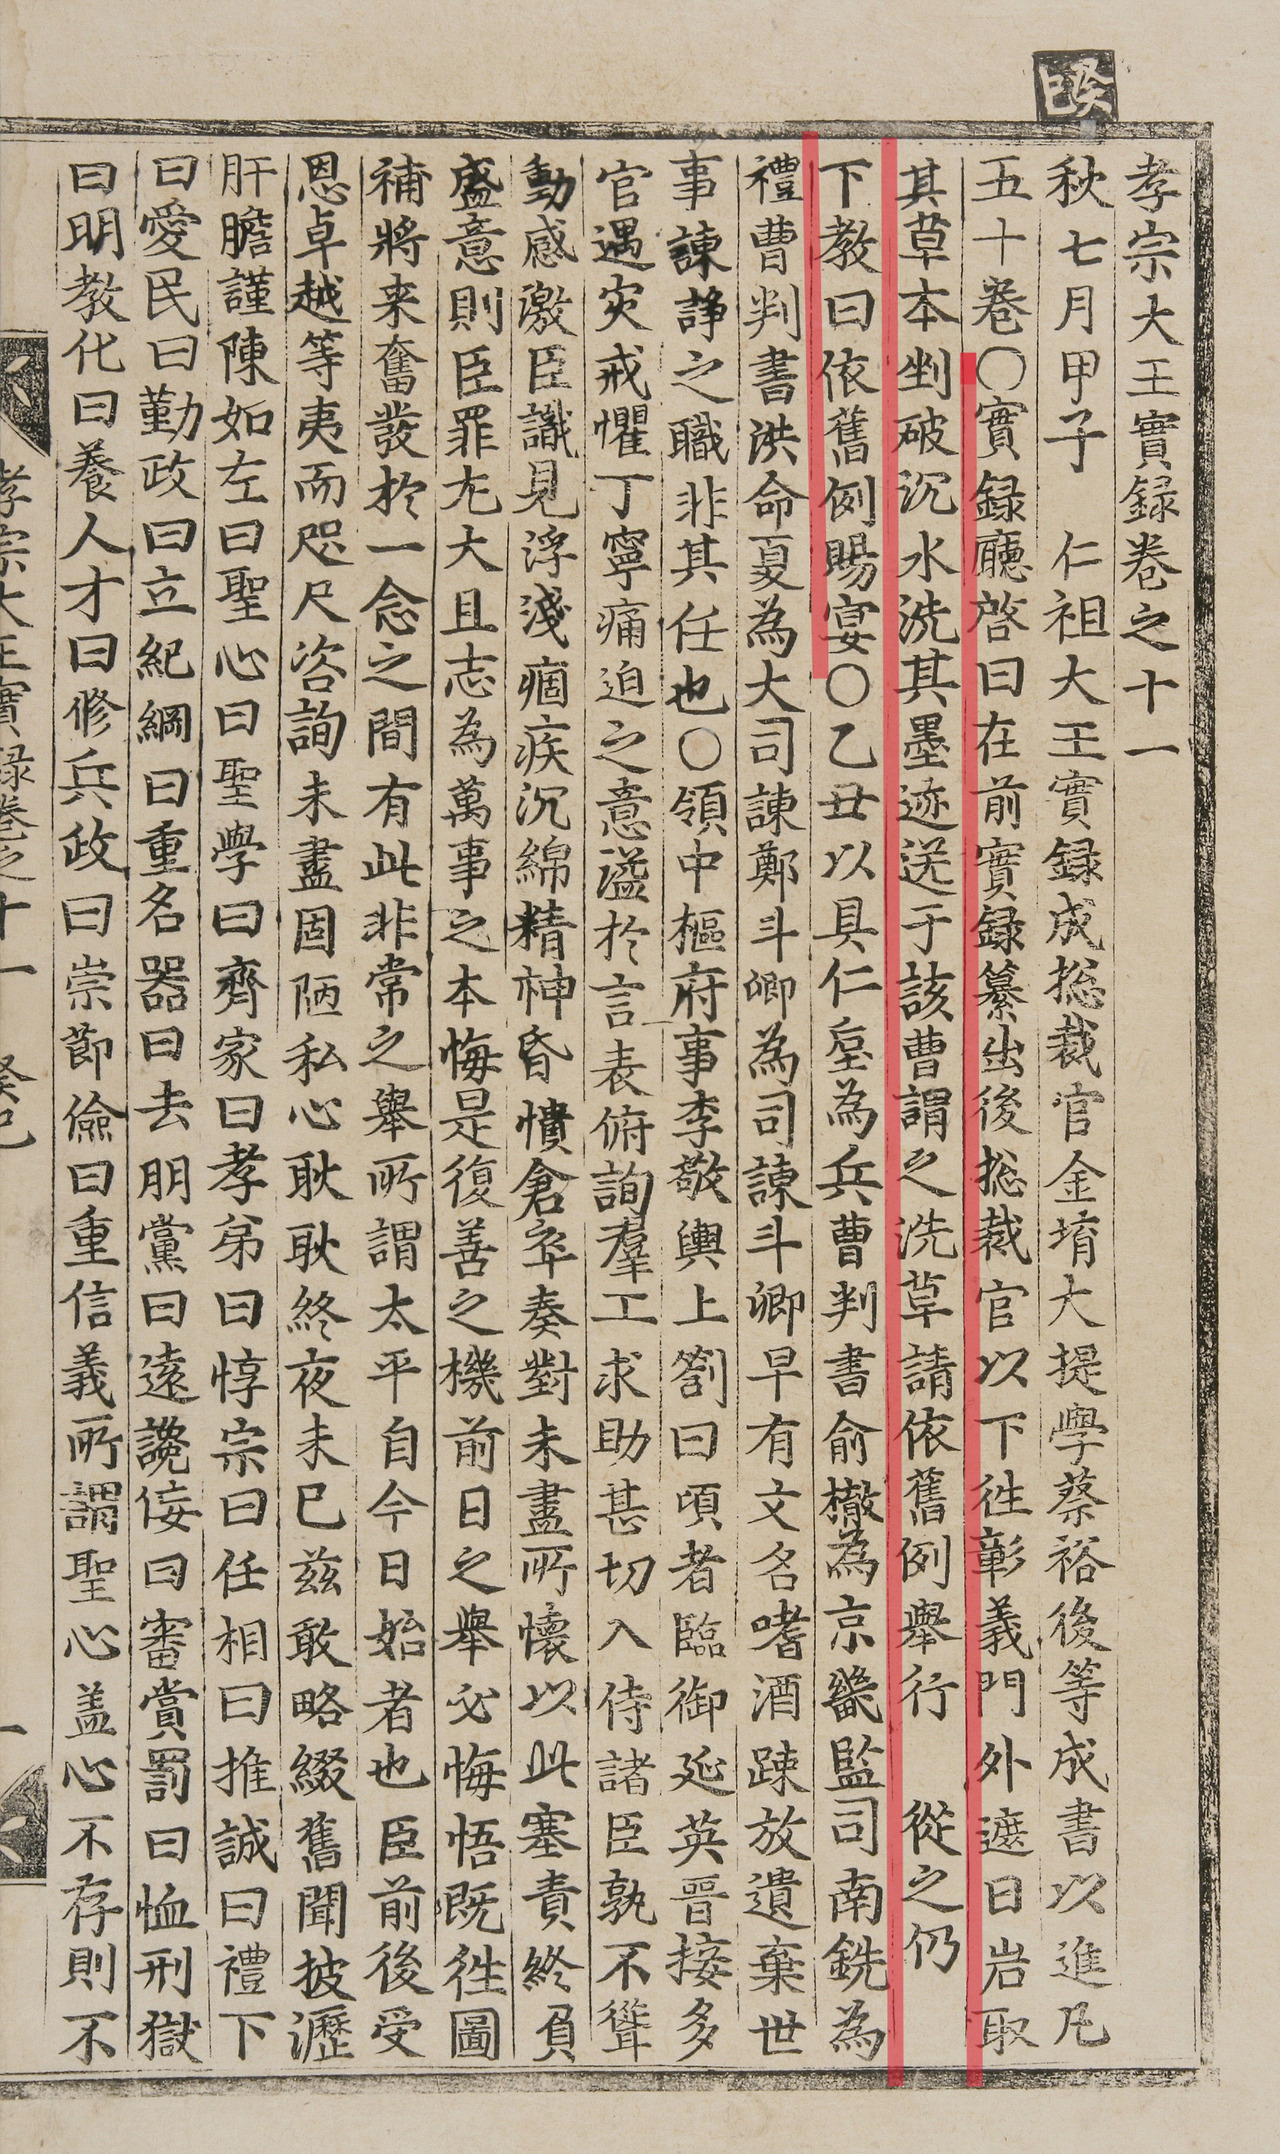 癸巳
孝宗大王實録卷之十一
秋七月甲子　仁祖大王實録成捴裁官金堉大提學蔡裕後等成書以進凡
五十卷○實録廳啓曰在前實録纂出後捴裁官以下徃彰義門外遮日岩取
其草本剉破沉水洗其墨迹送于該曹謂之洗草請依舊例舉行　從之仍
下教曰依舊例賜宴○乙丑以具仁垕為兵曹判書俞㯙為京畿監司南銑為
禮曹判書洪命夏為大司諫鄭斗卿為司諫斗卿早有文名嗜酒踈放遺棄世
事諫諍之職非其任也○領中樞府事李敬輿上劄曰頃者臨御延英晉接多
官遇灾戒懼丁寧痛迫之意溢於言表俯詢羣工求助甚切入侍諸臣孰不聳
動感激臣識見浮淺痼疾沉綿精神昏憒倉卒奏對未盡所懷以此塞責終負
盛意則臣罪尤大且志為萬事之本悔是復善之機前日之舉必悔悟既徃圖
補將来奮發於一念之間有此非常之舉所謂太平自今日始者也臣前後受
恩卓越等夷而咫尺咨詢未盡固陋私心耿耿終夜未已茲敢略綴舊聞披瀝
肝膽謹陳如左曰聖心曰聖學曰齊家曰孝弟曰惇宗曰任相曰推誠曰禮下
曰愛民曰勤政曰立紀綱曰重名器曰去朋黨曰遠讒侫曰審賞罰曰恤刑獄
曰明教化曰養人才曰修兵政曰崇節儉曰重信義所謂聖心盖心不存則不
孝宗大王實録卷之十一　癸巳　一